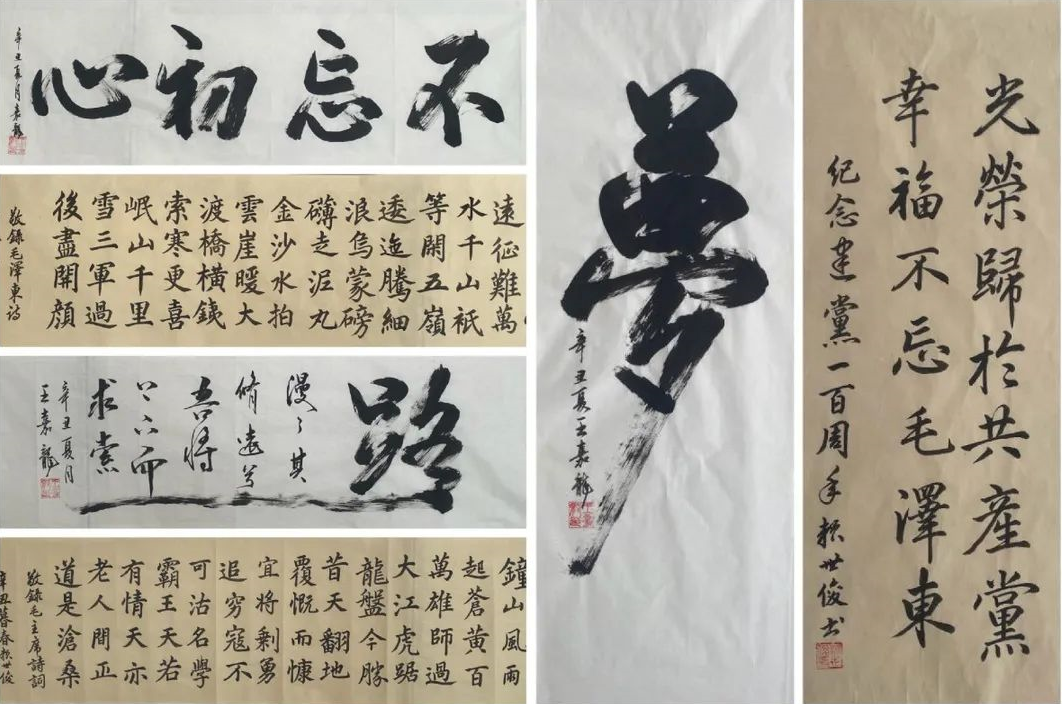 不忘初心
辛丑夏月嘉龍
遠征難萬
水千山祇
等閑五嶺
逶迤騰細
浪烏蒙磅
礴走泥丸
金沙水拍
雲崖暖大
渡橋橫銕
索寒更喜
岷山千里
雪三軍過
後盡開顏
敬錄毛澤東詩
路
漫〻其
脩遠兮
吾將
上下而
求索
辛丑夏月
王嘉龍
鐘山風雨
起蒼黃百
萬雄師過
大江虎踞
龍盤今勝
昔天翻地
覆慨而慷
宜將剩勇
追窮寇不
可沽名學
霸王天若
有情天亦
老人間正
道是滄桑
敬錄毛主席詩詞
辛丑暮春賴世俊
夢
辛丑夏王嘉龍
光榮歸於共產黨
幸福不忘毛澤東
紀念建黨一百周年賴世俊书